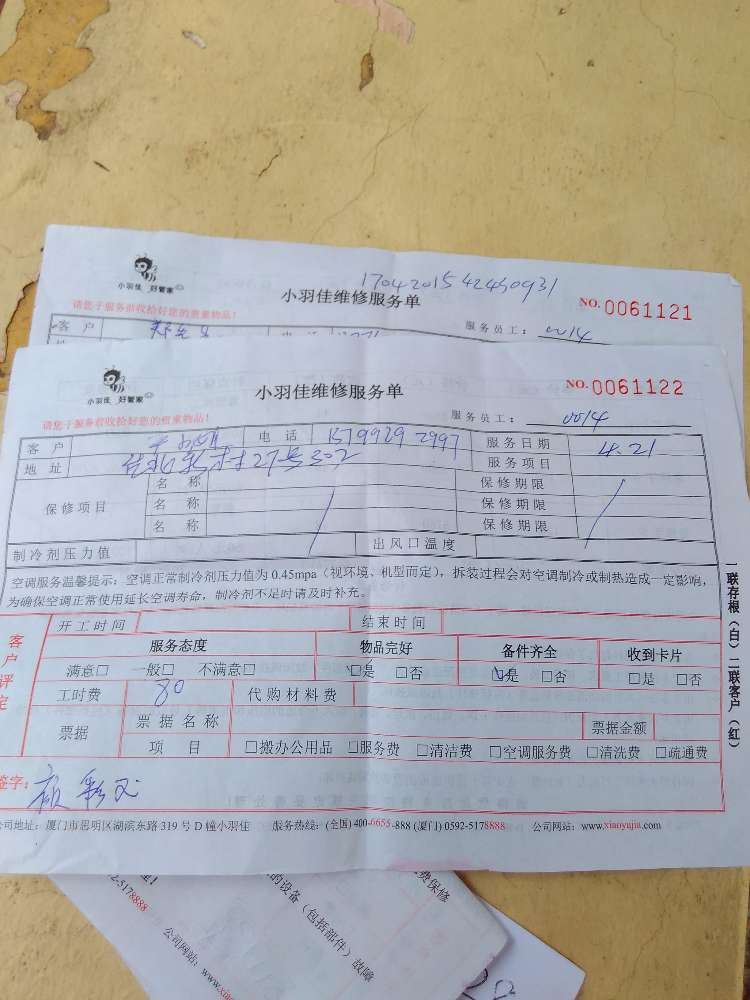 1704201542450931
小羽佳 好管家
小羽佳维修服务单
NO. 0061121
请您于服务前收拾好您的贵重物品!
服务员工: 0014
客 户
小羽佳 好管家
小羽佳维修服务单
NO. 0061122
请您于服务前收拾好您的贵重物品!
服务员工: 0014
客 户 电 话 服务日期 4.21
地 址 27号302 服务项目
保修项目 名 称 保修期限
名 称 保修期限
名 称 保修期限
制冷剂压力值 出风口温度
空调服务温馨提示:空调正常制冷剂压力值为 0.45mpa(视环境、机型而定),拆装过程会对空调制冷或制热造成一定影响,
为确保空调正常使用延长空调寿命,制冷剂不足时请及时补充。
一联存根(白)二联客户(红)
客户评定
开工时间 结束时间
服务态度 物品完好 备件齐全 收到卡片
满意□ 一般□ 不满意□ □是 □否 □是 □否 □是 □否
工时费 80 代购材料费
票据 票据名称 票据金额
项 目 □搬办公用品 □服务费 □清洁费 □空调服务费 □清洗费 □疏通费
签字:
公司地址:厦门市思明区湖滨东路 319 号 D 幢小羽佳 服务热线:(全国) 400-6655-888 (厦门) 0592-5178888 公司网站:www.xiaoyujia.com
2-5178888
公司网站:www.xiao
的设备(包括部件)故障
费保修